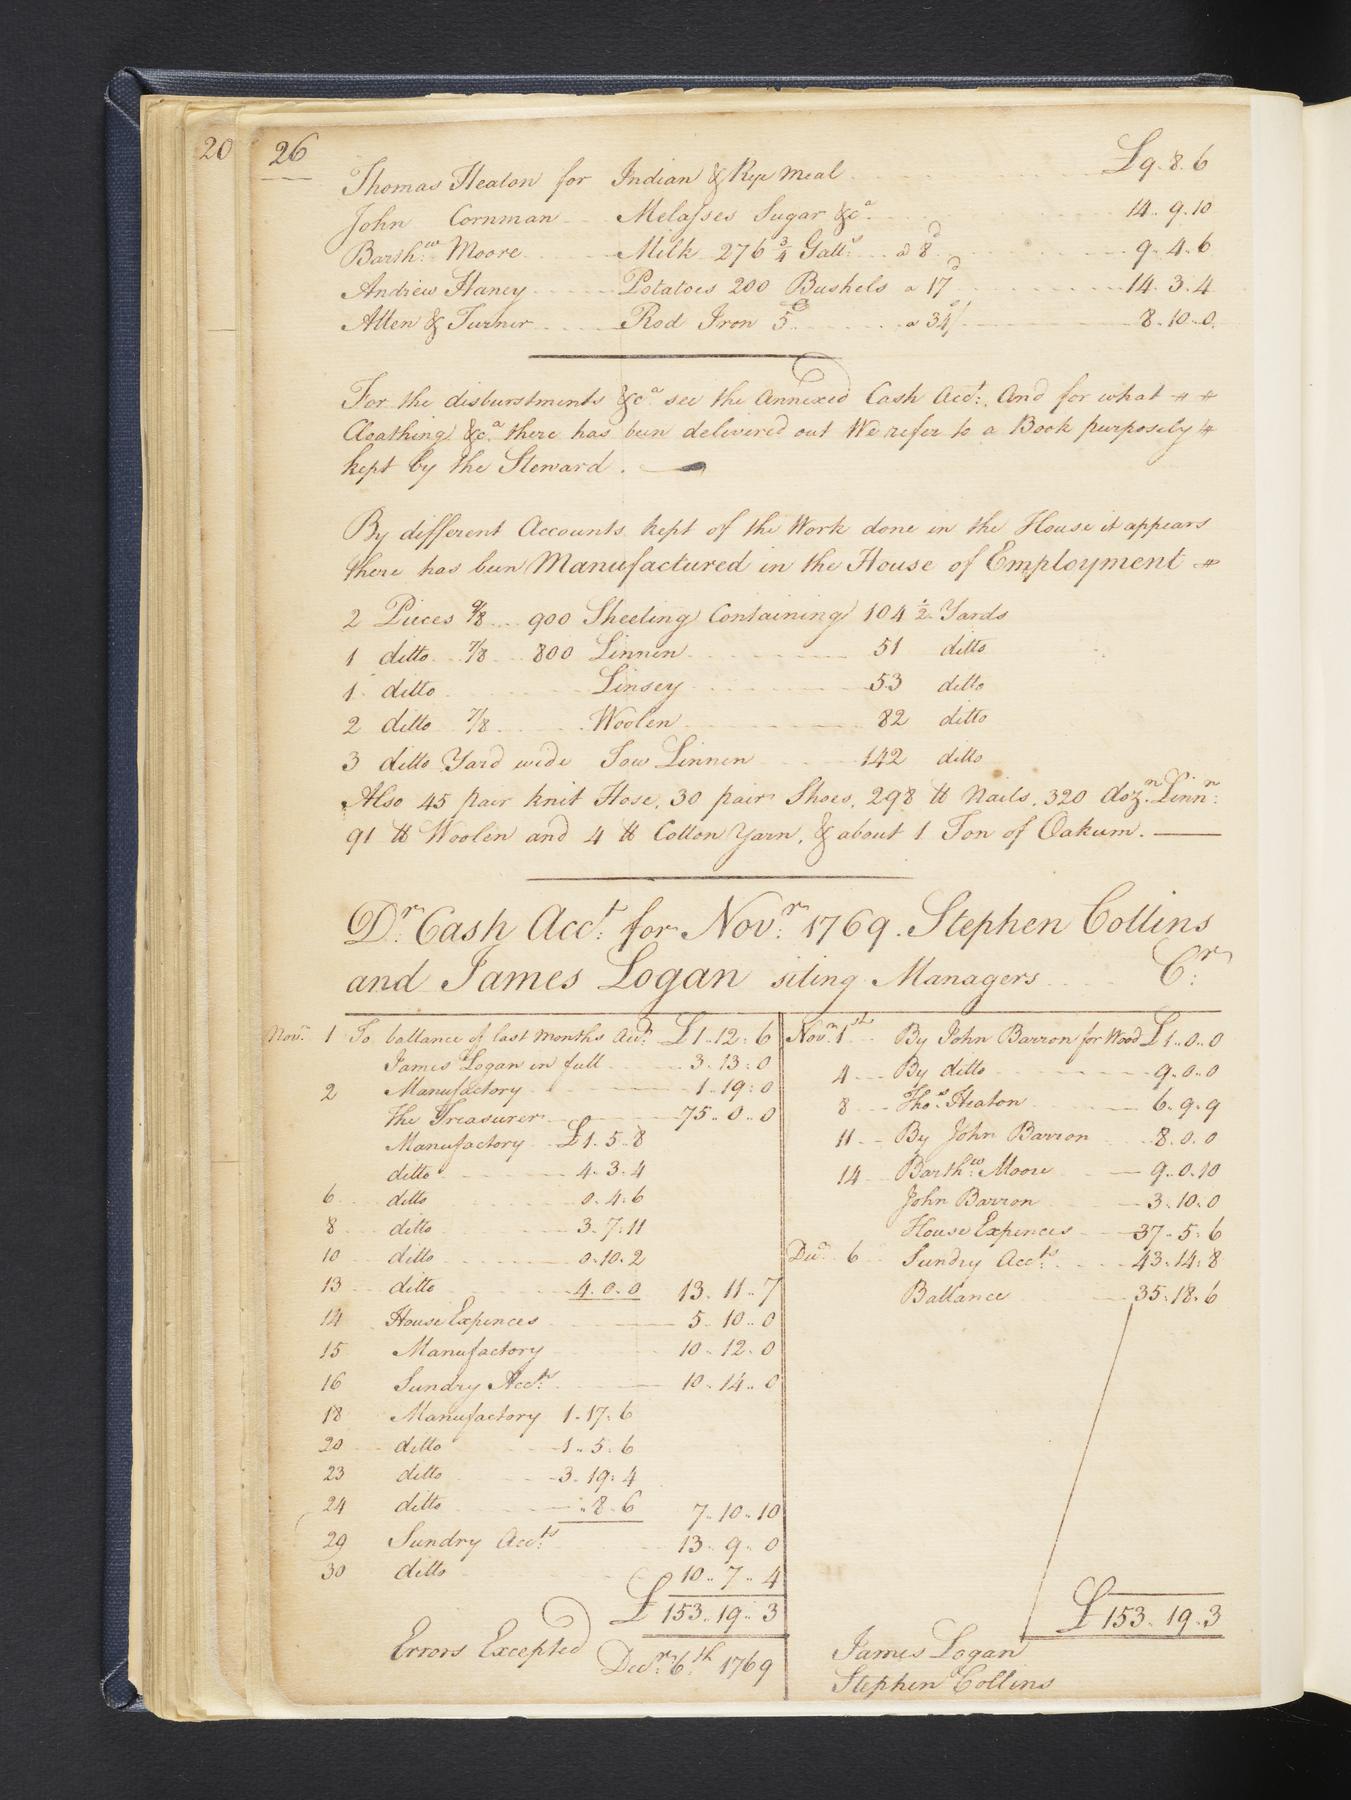 20
26
Thomas Heaton for Indian & Rye Meal £9.8.6
John Cornman Melasses Sugar &cª 14..9.10
Barthw. Moore Milk 276 3/4 Galls. a 8d 9..4.6
Andrew Haney Potatoes 200 Bushels a 17d 14.3.4
Allen & Turner Rod Iron 5C a 34/ 8.10.0
For the disburstments &cª see the Annexed Cash Acct. And for what
Cloathing &cª there has been delivered out We refer to a Book purposely
kept by the Steward.
By different Accounts kept of the Work done in the House it appears
there has been Manufactured in the House of Employment
2 Pieces 9/8 900 Sheeting Containing 104 1/2 Yards
1 ditto 7/8 800 Linnen 51 ditto
1 ditto Linsey 53 ditto
2 ditto 7/8 Woolen 82 ditto
3 ditto Yard wide Tow Linnen 142 ditto
Also 45 pair knit Hose, 30 pair Shoes, 298 lb Nails, 320 dozn. Linnn.
91 lb Woolen and 4 lb Cotton Yarn, & about 1 Ton of Oakum.
Dr. Cash Acct. for Novr. 1769. Stephen Collins
and James Logan siting Managers Cr.
Novr. 1 To ballance of last Months Acct. £1..12.6
James Logan in full 3.13.0
2 Manufactory 1.19.0
the Treasurer 75..0..0
Manufactory £1.5.8
ditto 4.3.4
6 ditto 0.4.6
8 ditto 3.7.11
10 ditto 0.10.2
13 ditto 4.0.0 13.11..7
14 House Expences 5.10..0
15 Manufactory 10..12.0
16 Sundry Accts. 10.14..0
18 Manufactory 1.17.6
20 ditto 1..5.6
23 ditto 3.19.4
24 ditto ..8.6 7..10..10
29 Sundry Accts. 13..9..0
30 ditto 10..7..4
£153..19..3
Errors Excepted Decr. 6th 1769
Novr. 1st By John Barron for Wood £1..0..0
4 By ditto 9.0..0
8 Thos. Heaton 6.9.9
11 By John Barron 8.0.0
14 Barthw. Moore 9..0.10
John Barron 3.10.0
House Expences 37.5.6
Decr. 6 Sundry Accts. 43.14.8
Ballance 35.18.6
£153..19.3
James Logan
Stephen Collins